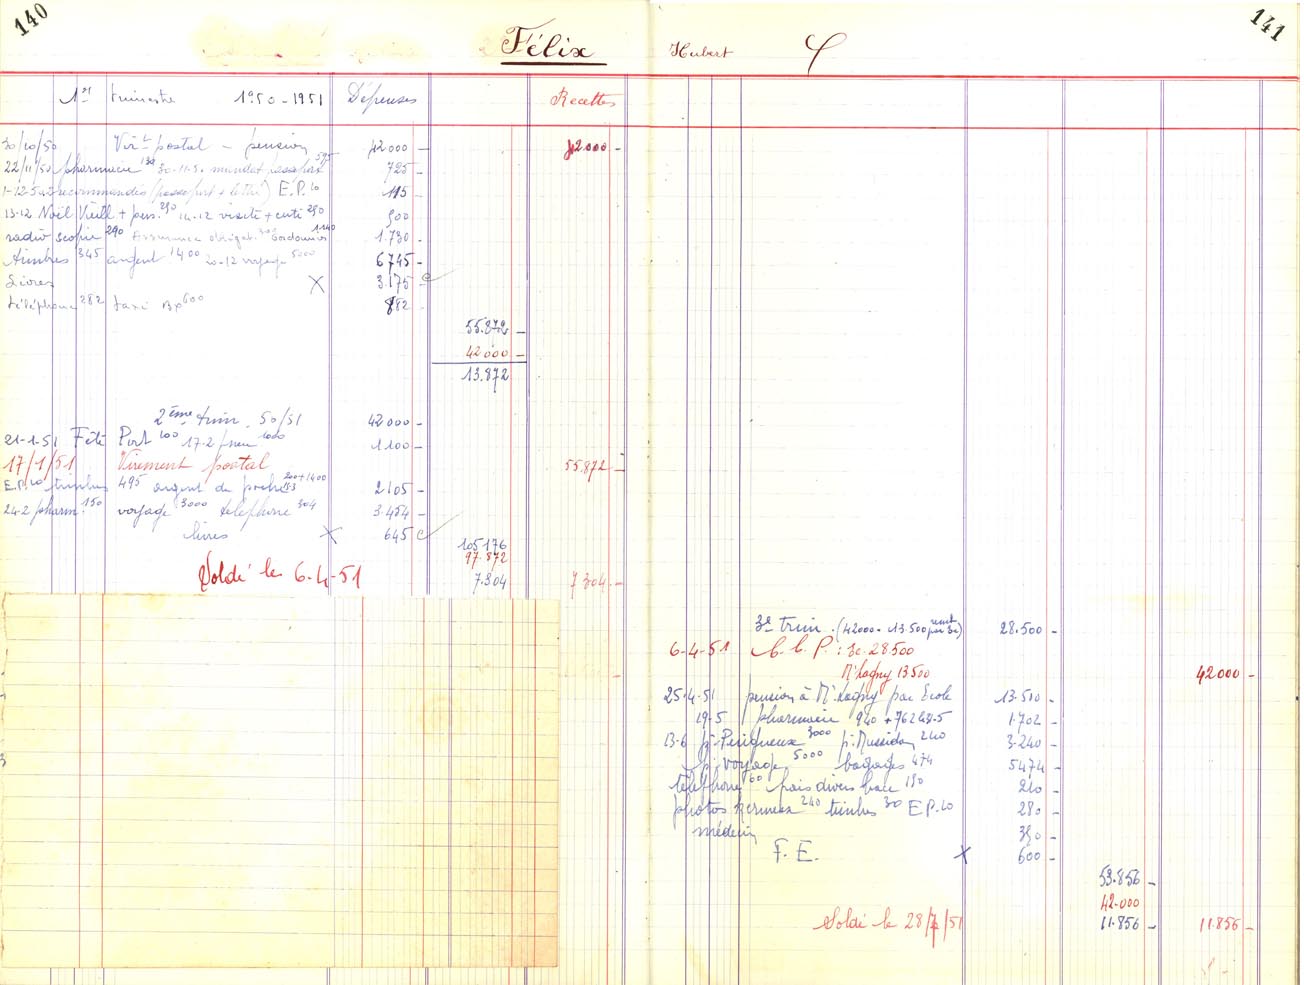 140
Félix
1er trimestre 1950-1951 Dépenses Recettes
30/10/50 Virt postal - pension 42000 - 42.000 -
22/11/50 pharmacie 130 30-11-50 mandat passeport 595 725 -
1-12-50 2 recommandés (passeport + lettre) E.P. 10 115 -
13-12 Noël Vieill + pens. 290 14-12 visite + cuti 290 900 -
radio scopie 290 Assurance obligat. 300 Cordonnier 1140 1.730 -
timbres 345 argent 1400 20-12 voyage 5000 6745 -
Livres X 3.175 -
téléphone 282 taxi Bx 600 882 -
55.872 -
42000 -
13.872
2ème trim. 50/51 42000 -
21-1-51 Fête Port 100 17-2 pneu 1000 1100 -
17/1/51 Virement postal 55.872 -
E.P. 10 timbres 495 argent de poche 200+1400 2105 -
24-2 pharm. 150 voyage 3000 téléphone 304 3.454 -
livres X 645
105176
97.872
Soldé le 6-4-51 7.304 7304 -
141
Hubert
3e trim. (42000 - 13.500 28.500 -
6-4-51 C.C.P. : Ec. 28500
Mt Lagny 13500 42000 -
25-4-51 pension à Mt Lagny par Ecole 13.500 -
19-5 pharmacie 940 + 762 1.702 -
13-6 pr Périgueux 3000 pr Mussidan 240 3.240 -
pr voyage 5000 bagages 474 5474 -
téléphone 60 frais divers bac 150 210 -
photos 240 timbres 30 E.P. 10 280 -
médecin 350 -
F. E. X 600 -
53.856 -
42.000
Soldé le 28/7/51 11.856 - 11.856 -